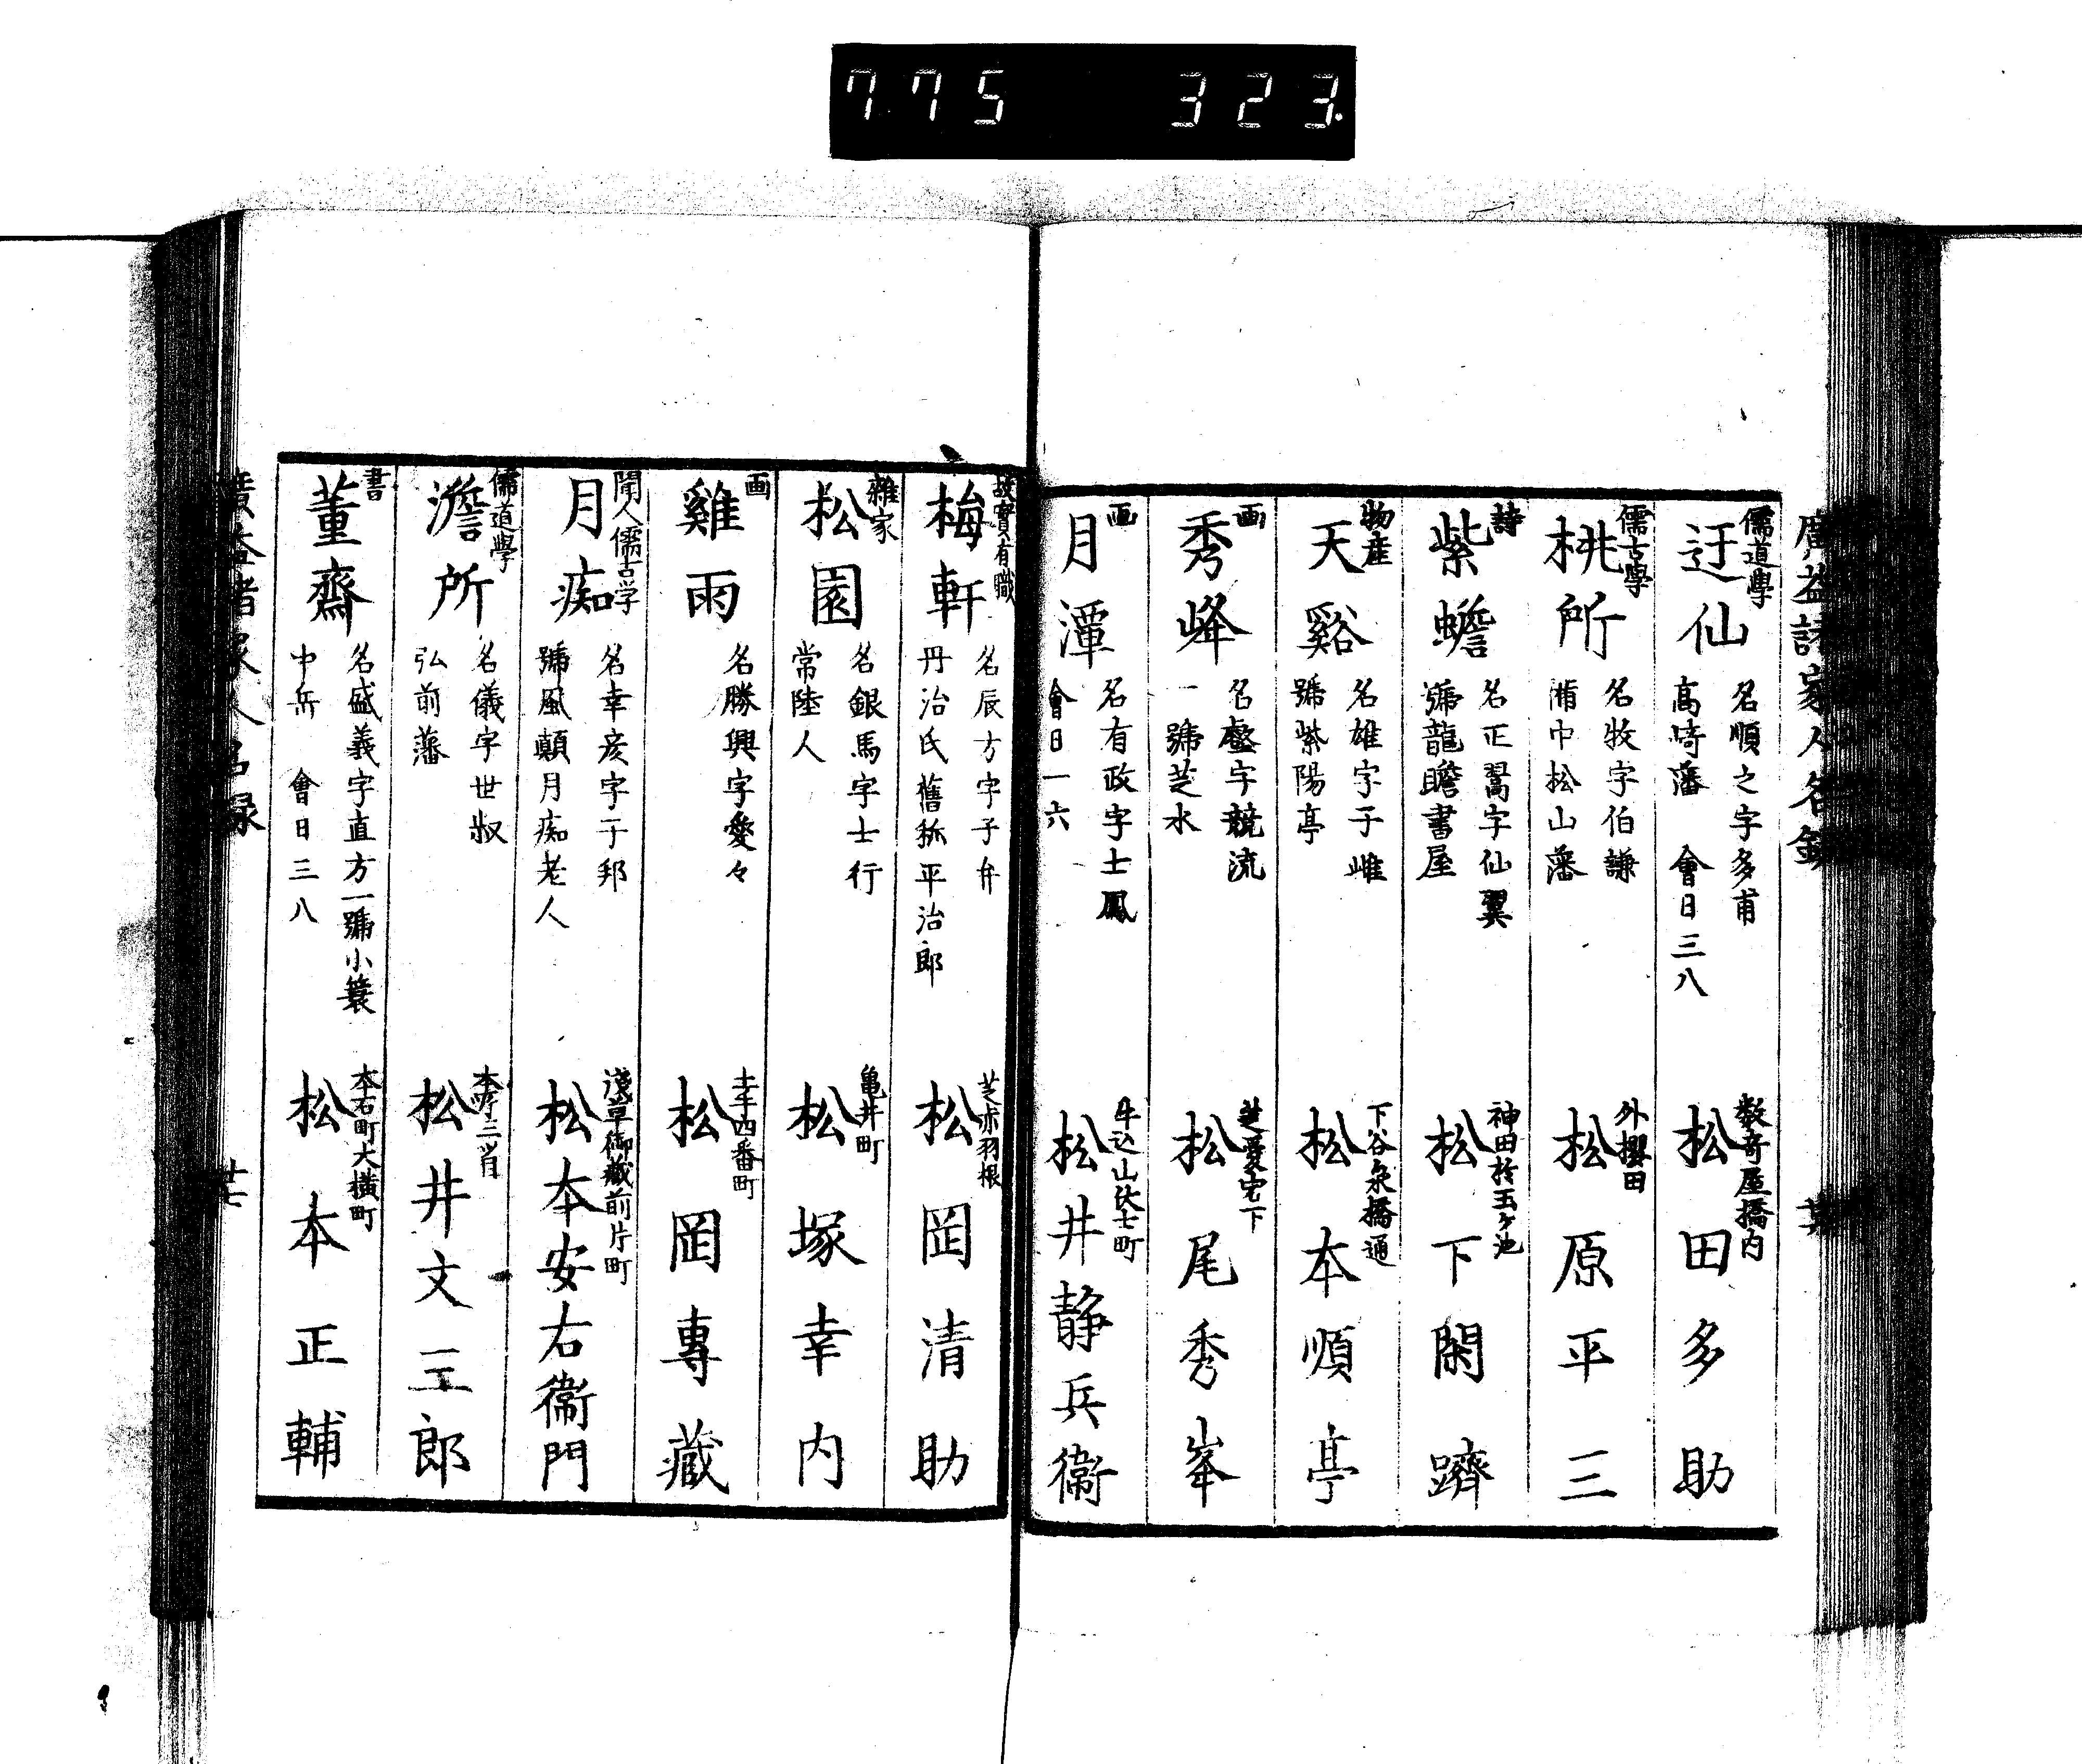 775 323
廣益諸家人名録
儒道學
迂仙
名順之字多甫
高崎藩 會日三八
数寄屋橋内
松田多助
儒古學
桃所
名牧字伯謙
備中松山藩
外櫻田
松原平三
詩
紫蟾
名正翯字仙翼
號龍瞻書屋
神田於玉ヶ池
松下閑躋
物産
天谿
名雄字子雌
號紫陽亭
下谷泉橋通
松本順亭
画
秀峰
名盤字競流
一號芝水
芝愛宕下
松尾秀峯
画
月潭
名有政字士鳳
會日一六
牛込山伏士町
松井静兵衞
故實有職
梅軒
名辰方字子弁
丹治氏舊称平治郎
芝赤羽根
松岡清助
雜家
松園
名銀馬字士行
常陸人
亀井町
松塚幸内
画
雞雨
名勝興字愛々
土手四番町
松岡專藏
聞人儒古学
月痴
名幸彦字子邦
號風顛月痴老人
淺草御藏前片町
松本安右衞門
儒道學
澹所
名儀字世叔
弘前藩
本所三ツ目
松井文三郎
書
董齋
名盛義字直方一號小簑
中岳 會日三八
本石町大横町
松本正輔
廣益諸家人名録
廿七